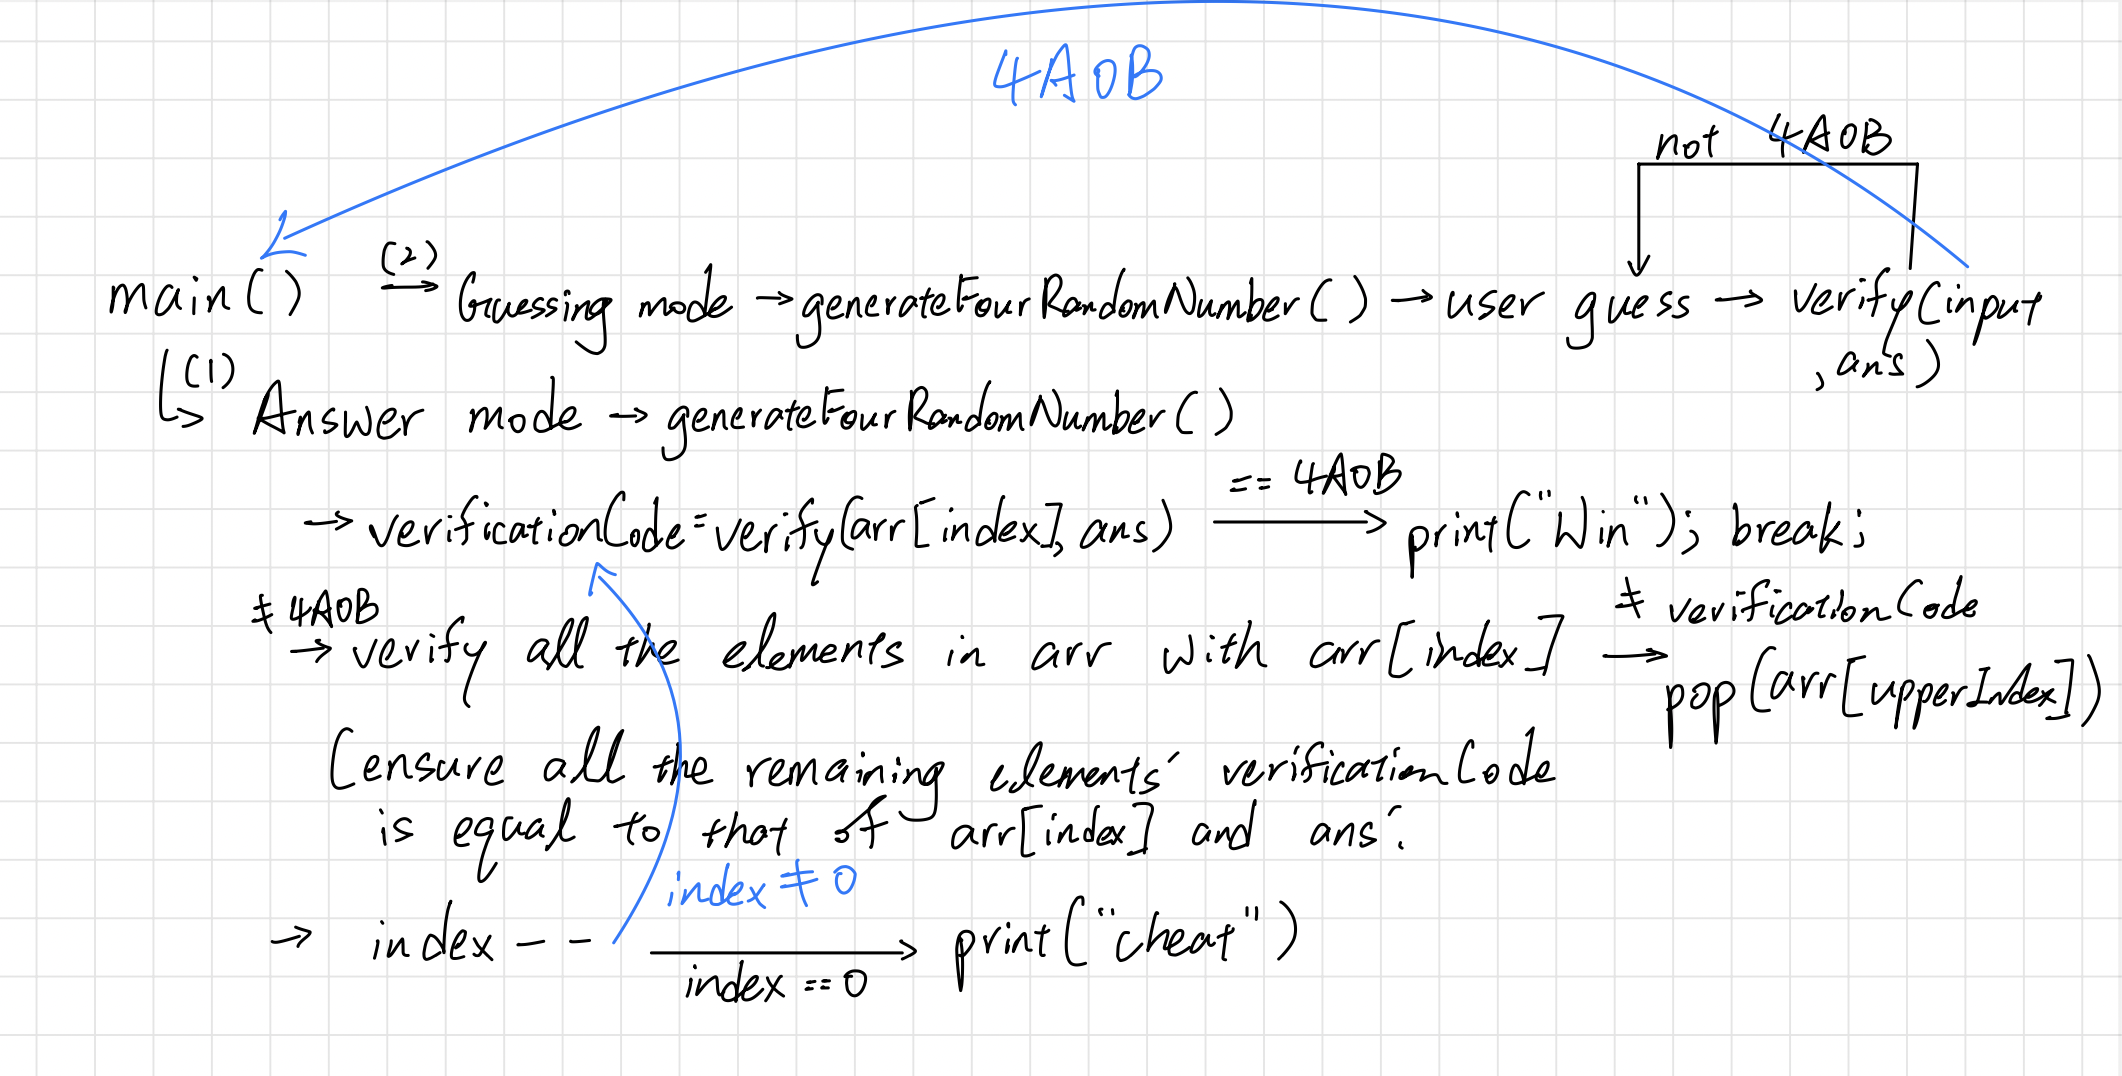 4A0B
not 4A0B
(2)
main() → Guessing mode → generateFourRandomNumber() → user guess → verify(input
, ans)
(1)
↳ Answer mode → generateFourRandomNumber()
== 4A0B
→ verificationCode = verify(arr[index], ans) → print("Win"); break;
≠ 4A0B
≠ verificationCode
→ verify all the elements in arr with arr[index] →
pop(arr[upperIndex])
(ensure all the remaining elements' verificationCode
is equal to that of arr[index] and ans.
index ≠ 0
→ index -- → print("cheat")
index == 0